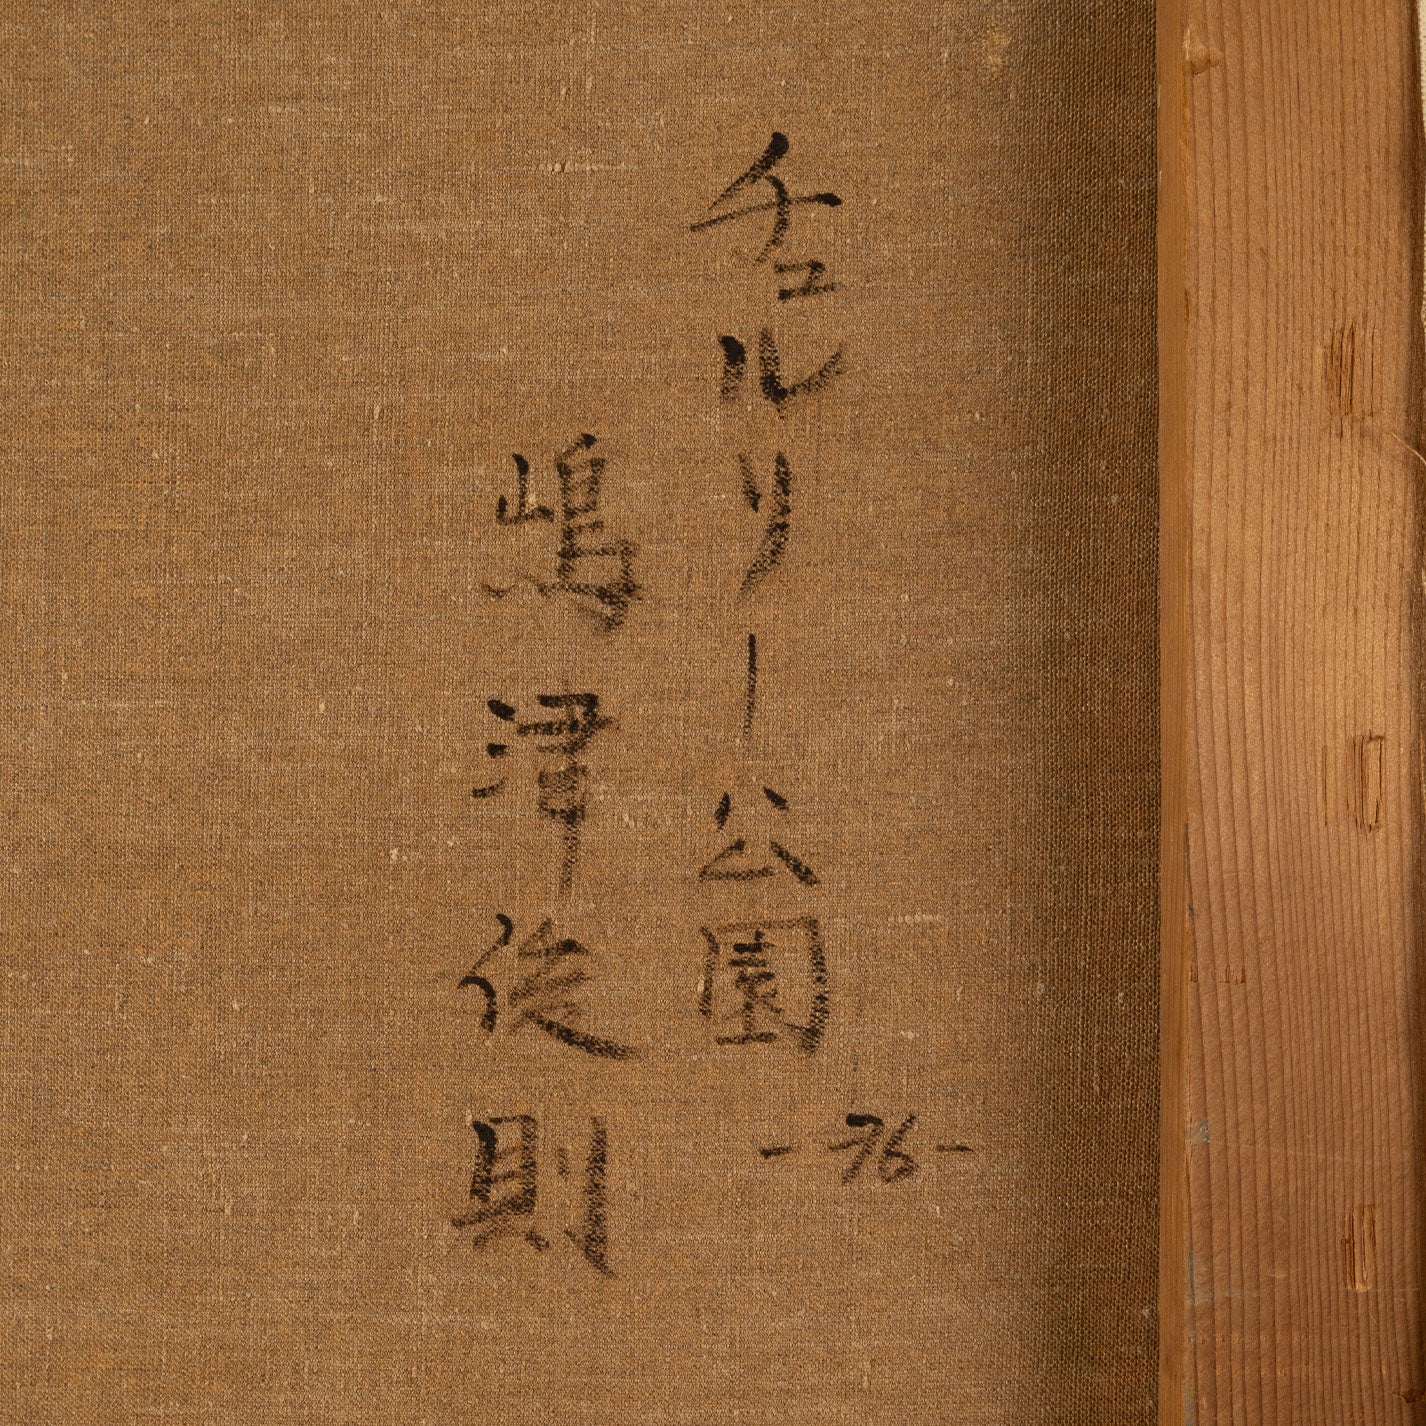 チュルリー公園
-76-
嶋津従則